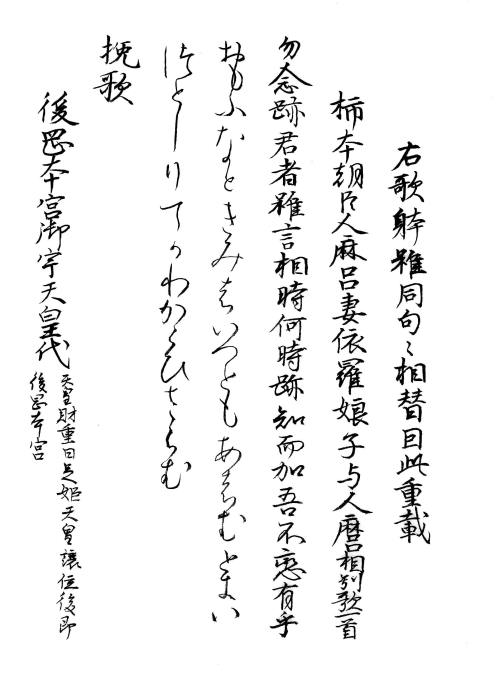 右歌躰雖同句〻相替因此重載
柿本朝臣人麻呂妻依羅娘子与人麿相別歌一首
勿念跡君者雖言相時何時跡知而加吾不恋有乎
おもふなときみはいへともあはむときい
つとしりてかわかこひさらむ
挽歌
後岡本宮御宇天皇代
天皇財重日足姫天皇讓位後即
後岡本宮